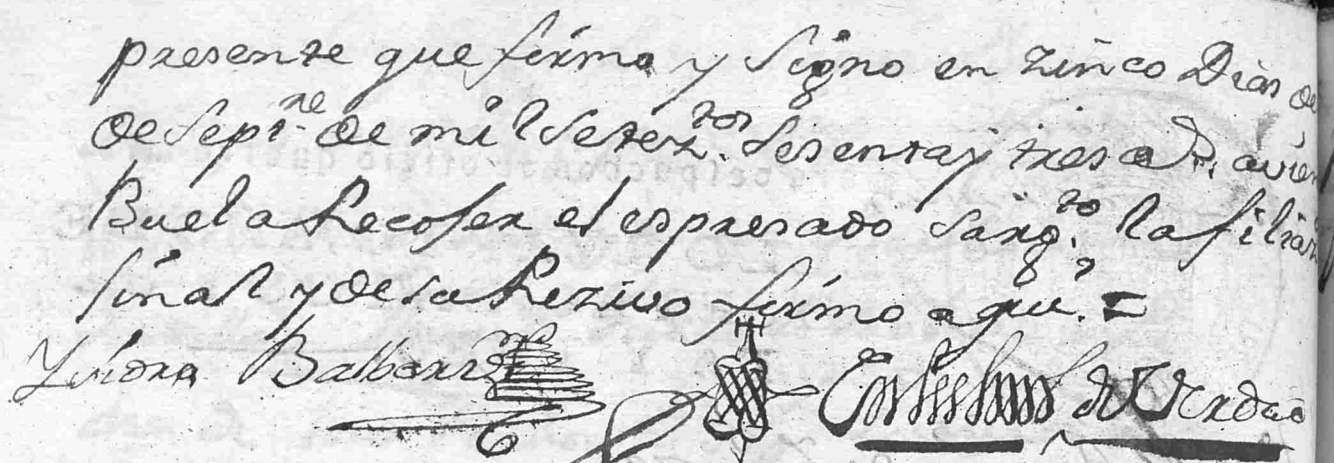 presente que firmo y signo en zinco Dias de
de Sept.re de mil Setez.tos sesenta y tres a.s, avien
Buelto a Recojer el espresado Sarg.to la filia
sinal y de su Rezivo firmo aqui. =
Ysidora Balbarr
de Verdad